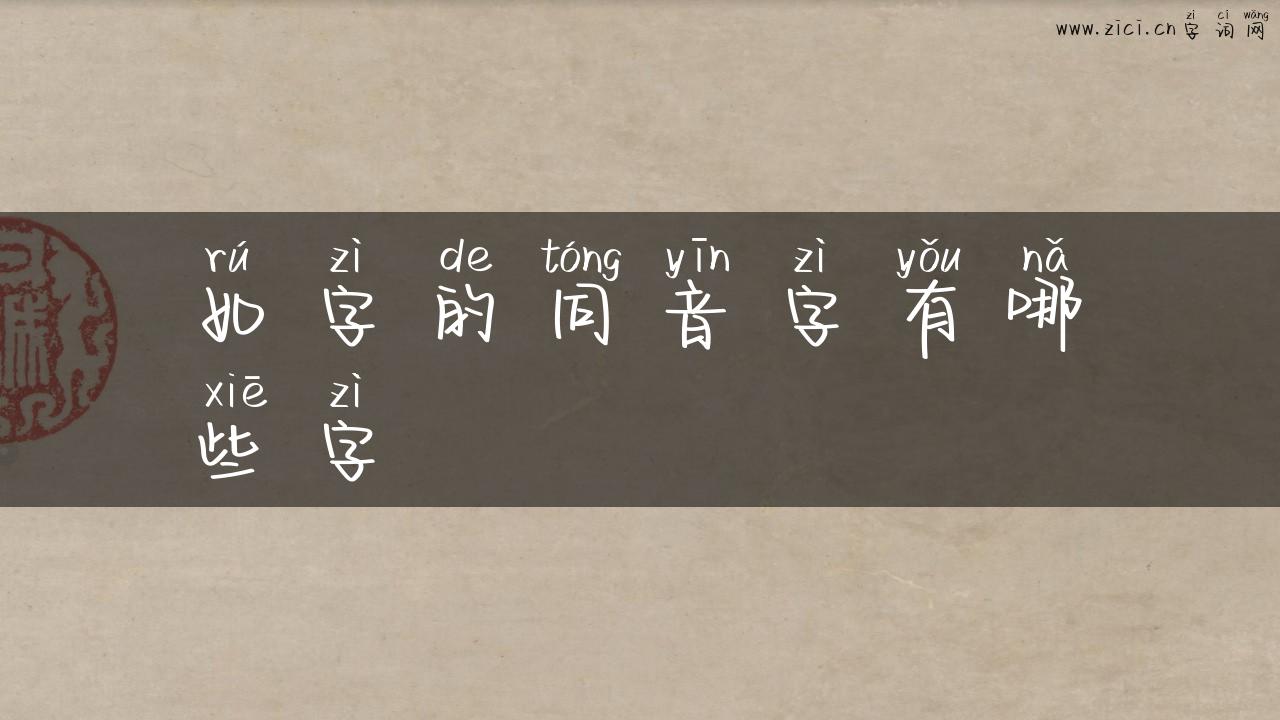 zì cí wǎng
www.zici.cn 字 词 网
rú zì de tóng yīn zì yǒu nǎ
如 字 的 同 音 字 有 哪
xiē zì
些 字